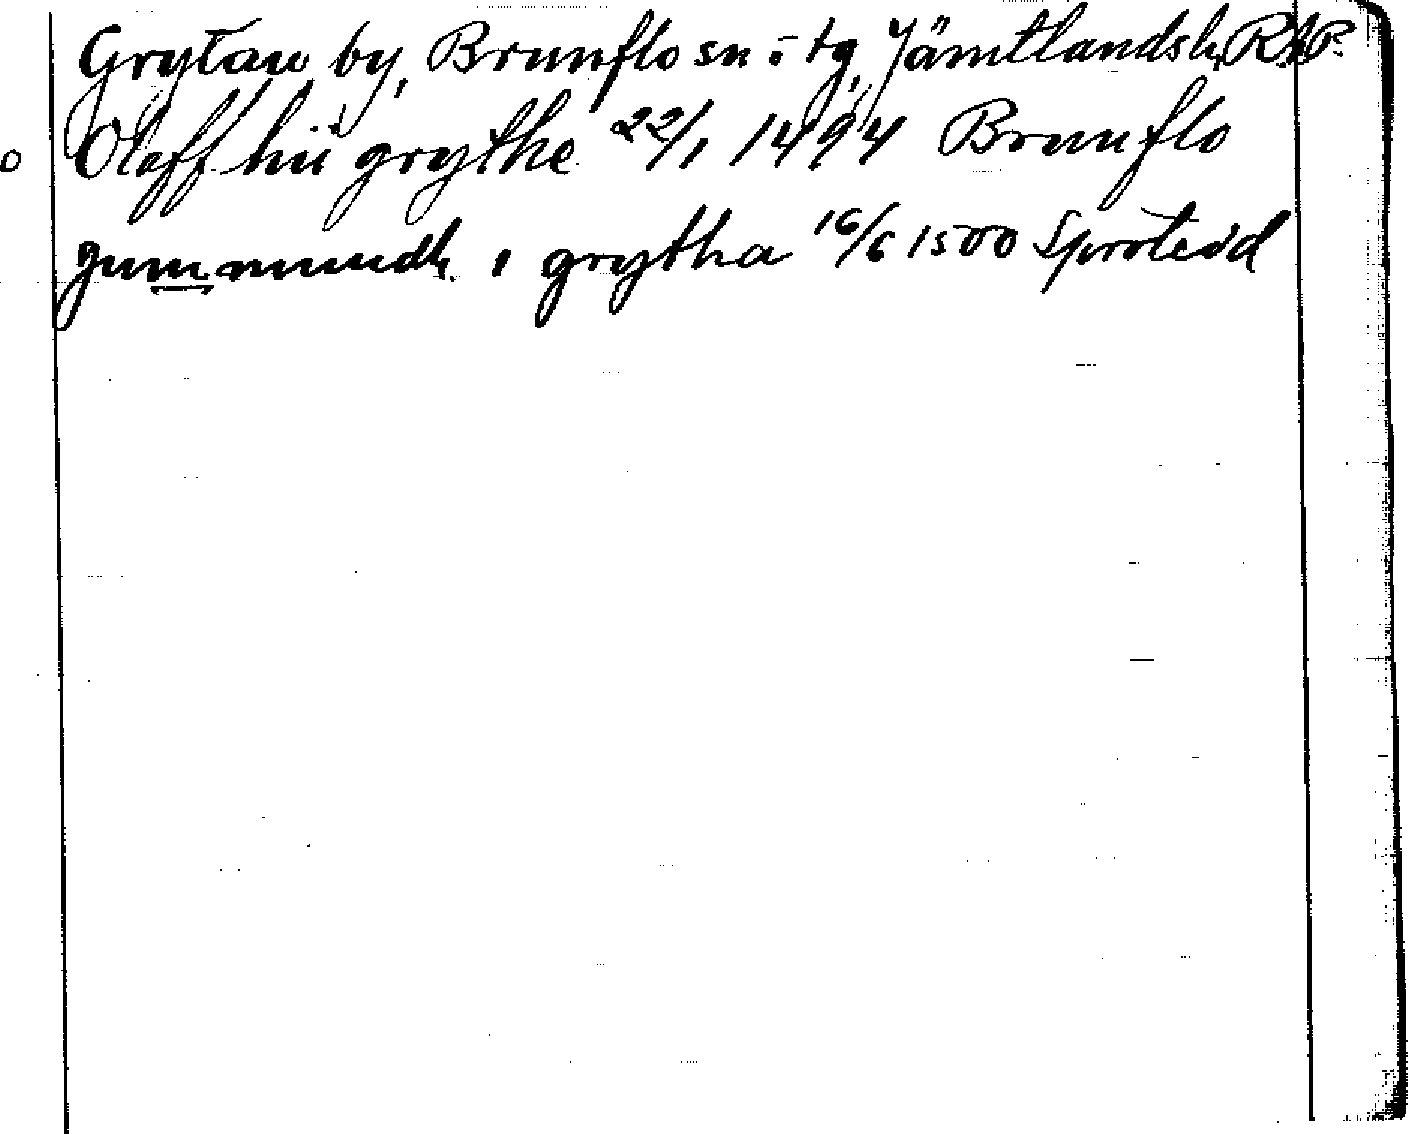 Grytan, by, Brunflo sn o tg, Jämtlands l, RAP.
Olaff hii grythe 22/1 1494 Brunflo
gummundh i grytha 16/6 1500 Sproteid